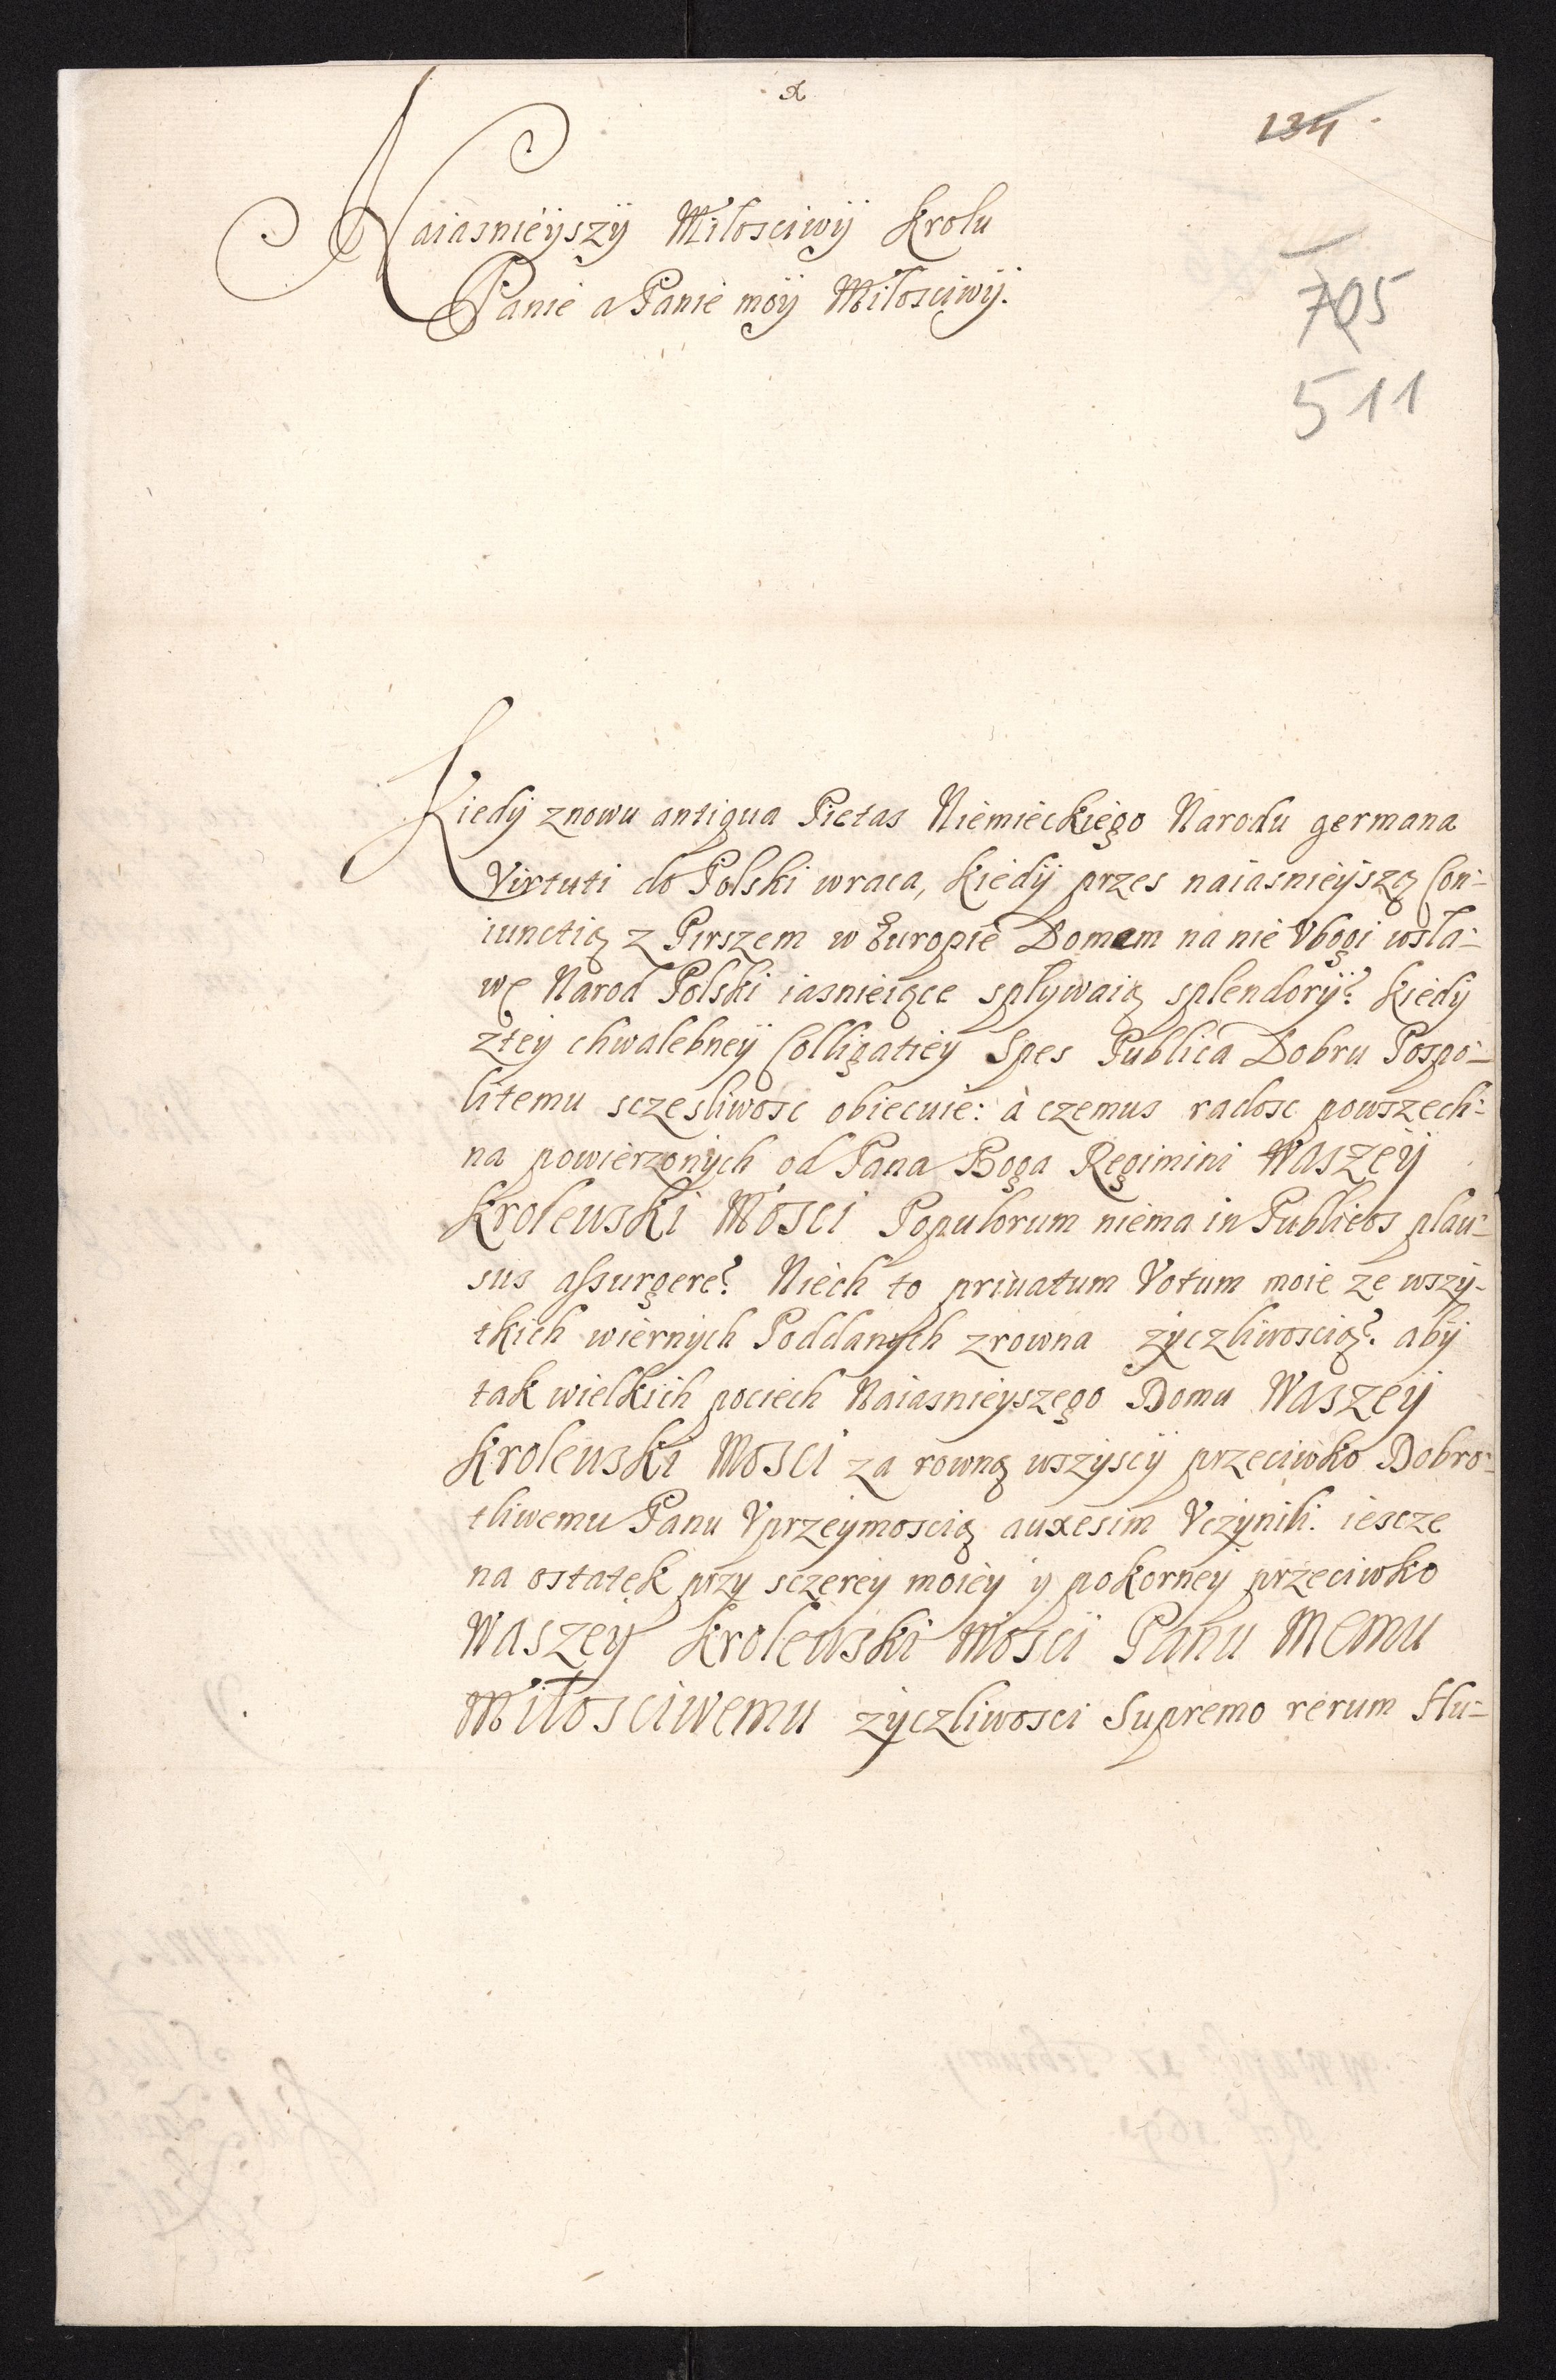 134.
Naiasnieyszÿ Miłosciwÿ Krolu
Panie a Panie moÿ Miłosciwÿ.
705
511
Kiedÿ znowu antiqua Pietas Niemieckiego Narodu germana
Virtuti do Polski wraca, kiedÿ przes naiasnieÿszą Con-
iunctią z Pirszem w Europie Domem na nie Vbogi wsła-
wę Narod Polski iasnieiące spływaią splendorÿ? kiedÿ
ztey chwalebneÿ Colligatiey Spes Publica Dobru Pospo-
litemu sczęsliwosc obiecuie: à czemus radosc powszech-
na powierzonÿch od Pana Boga Regimini Waszeÿ
Krolewski Mosci Populorum niema in Publicos plau-
sus assurgere? Niech to priuatum Votum moie ze wszÿ-
tkich wiernÿch Poddanÿch zrowna zÿczliwoscią? abÿ
tak wielkich pociech Naiasnieyszego Domu Waszeÿ
Krolewski Mosci za rowną wszÿscÿ przeciwko Dobro-
tliwemu Panu Vprzeÿmoscią auxesim Vczÿnili. iescze
na ostatek przy sczerey moiey y pokorney przeciwko
Waszeÿ Krolewski Mosci Panu Memu
Miłosciwemu zÿczliwosci Supremo rerum Flu-